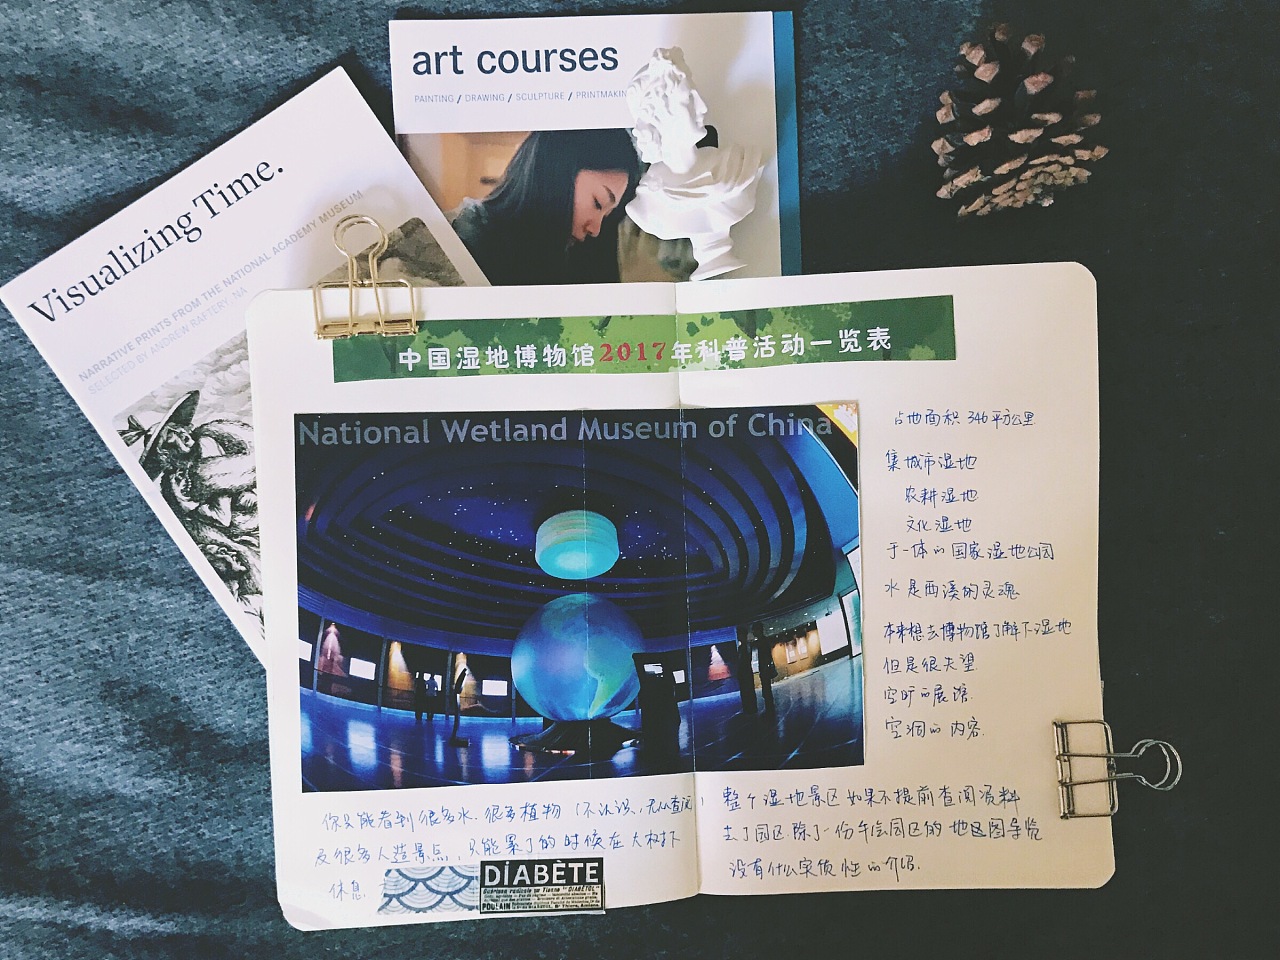 art courses
PAINTING / DRAWING / SCULPTURE / PRINTMAKIN
Visualizing Time.
NARRATIVE PRINTS FROM THE NATIONAL ACADEMY MUSEUM
SELECTED BY ANDREW RAFTERY, NA
中国湿地博物馆2017年科普活动一览表
National Wetland Museum of China
占地面积 346平方公里
集城市湿地
农耕湿地
文化湿地
于一体的国家湿地公园
水是西溪的灵魂
本来想去博物馆了解下湿地
但是很失望
空旷的展馆
空洞的内容
你只能看到很多水.很多植物(不认识,无从查阅)
及很多人造景点,只能累了的时候在大树下
休息
整个湿地景区如果不提前查阅资料
去了园区.除了一份手绘园区的地图导览
没有什么实质性的介绍.
DIABÈTE
POULAIN